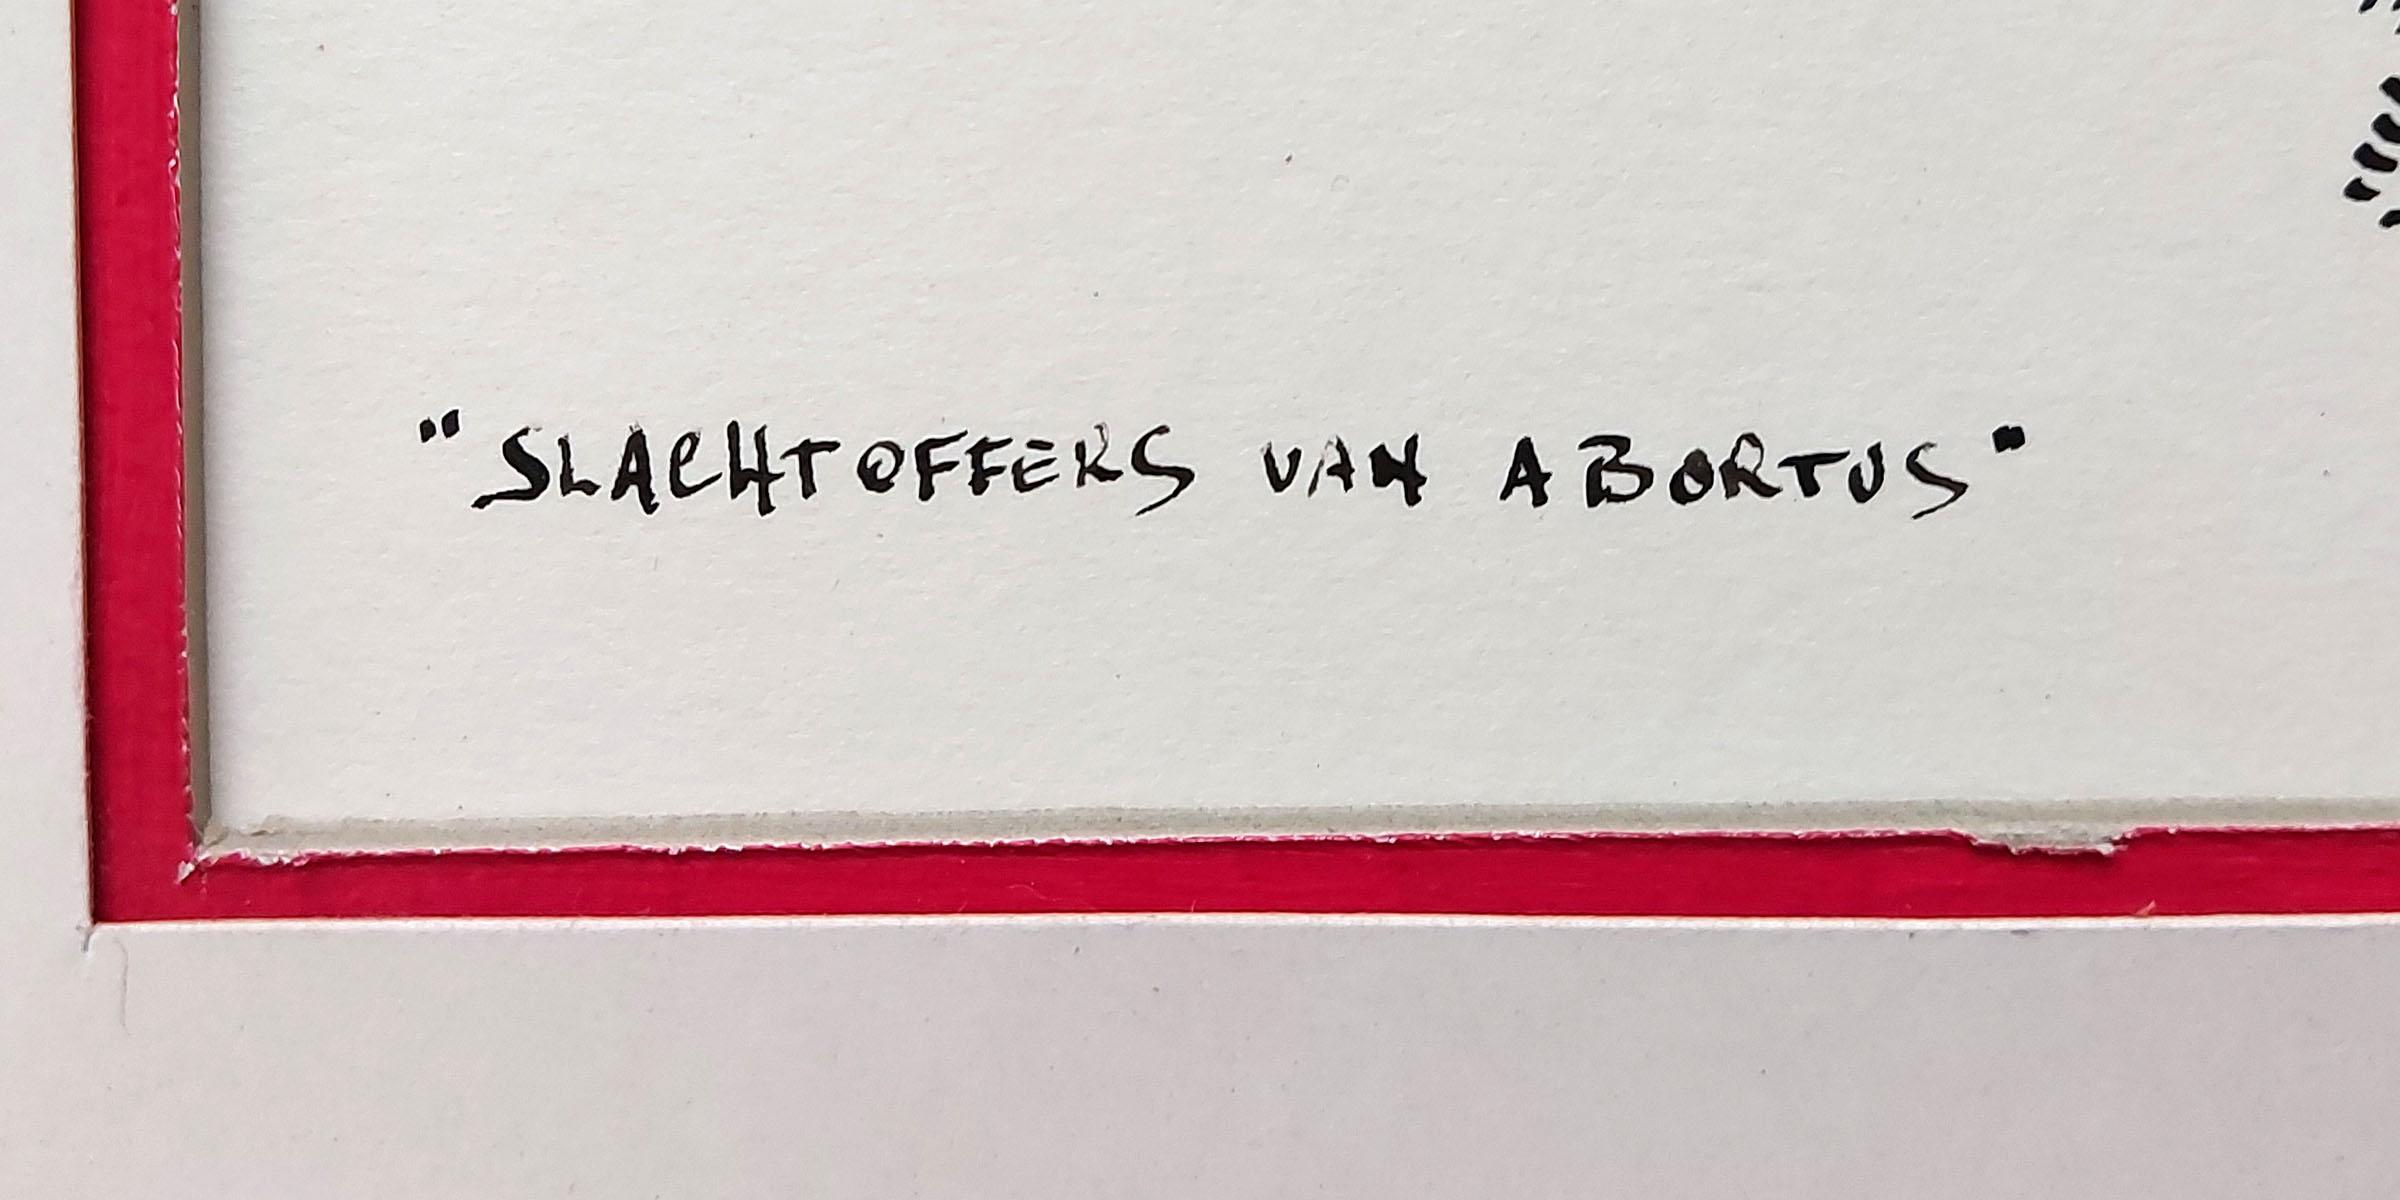 "SLACHTOFFERS VAN ABORTUS"